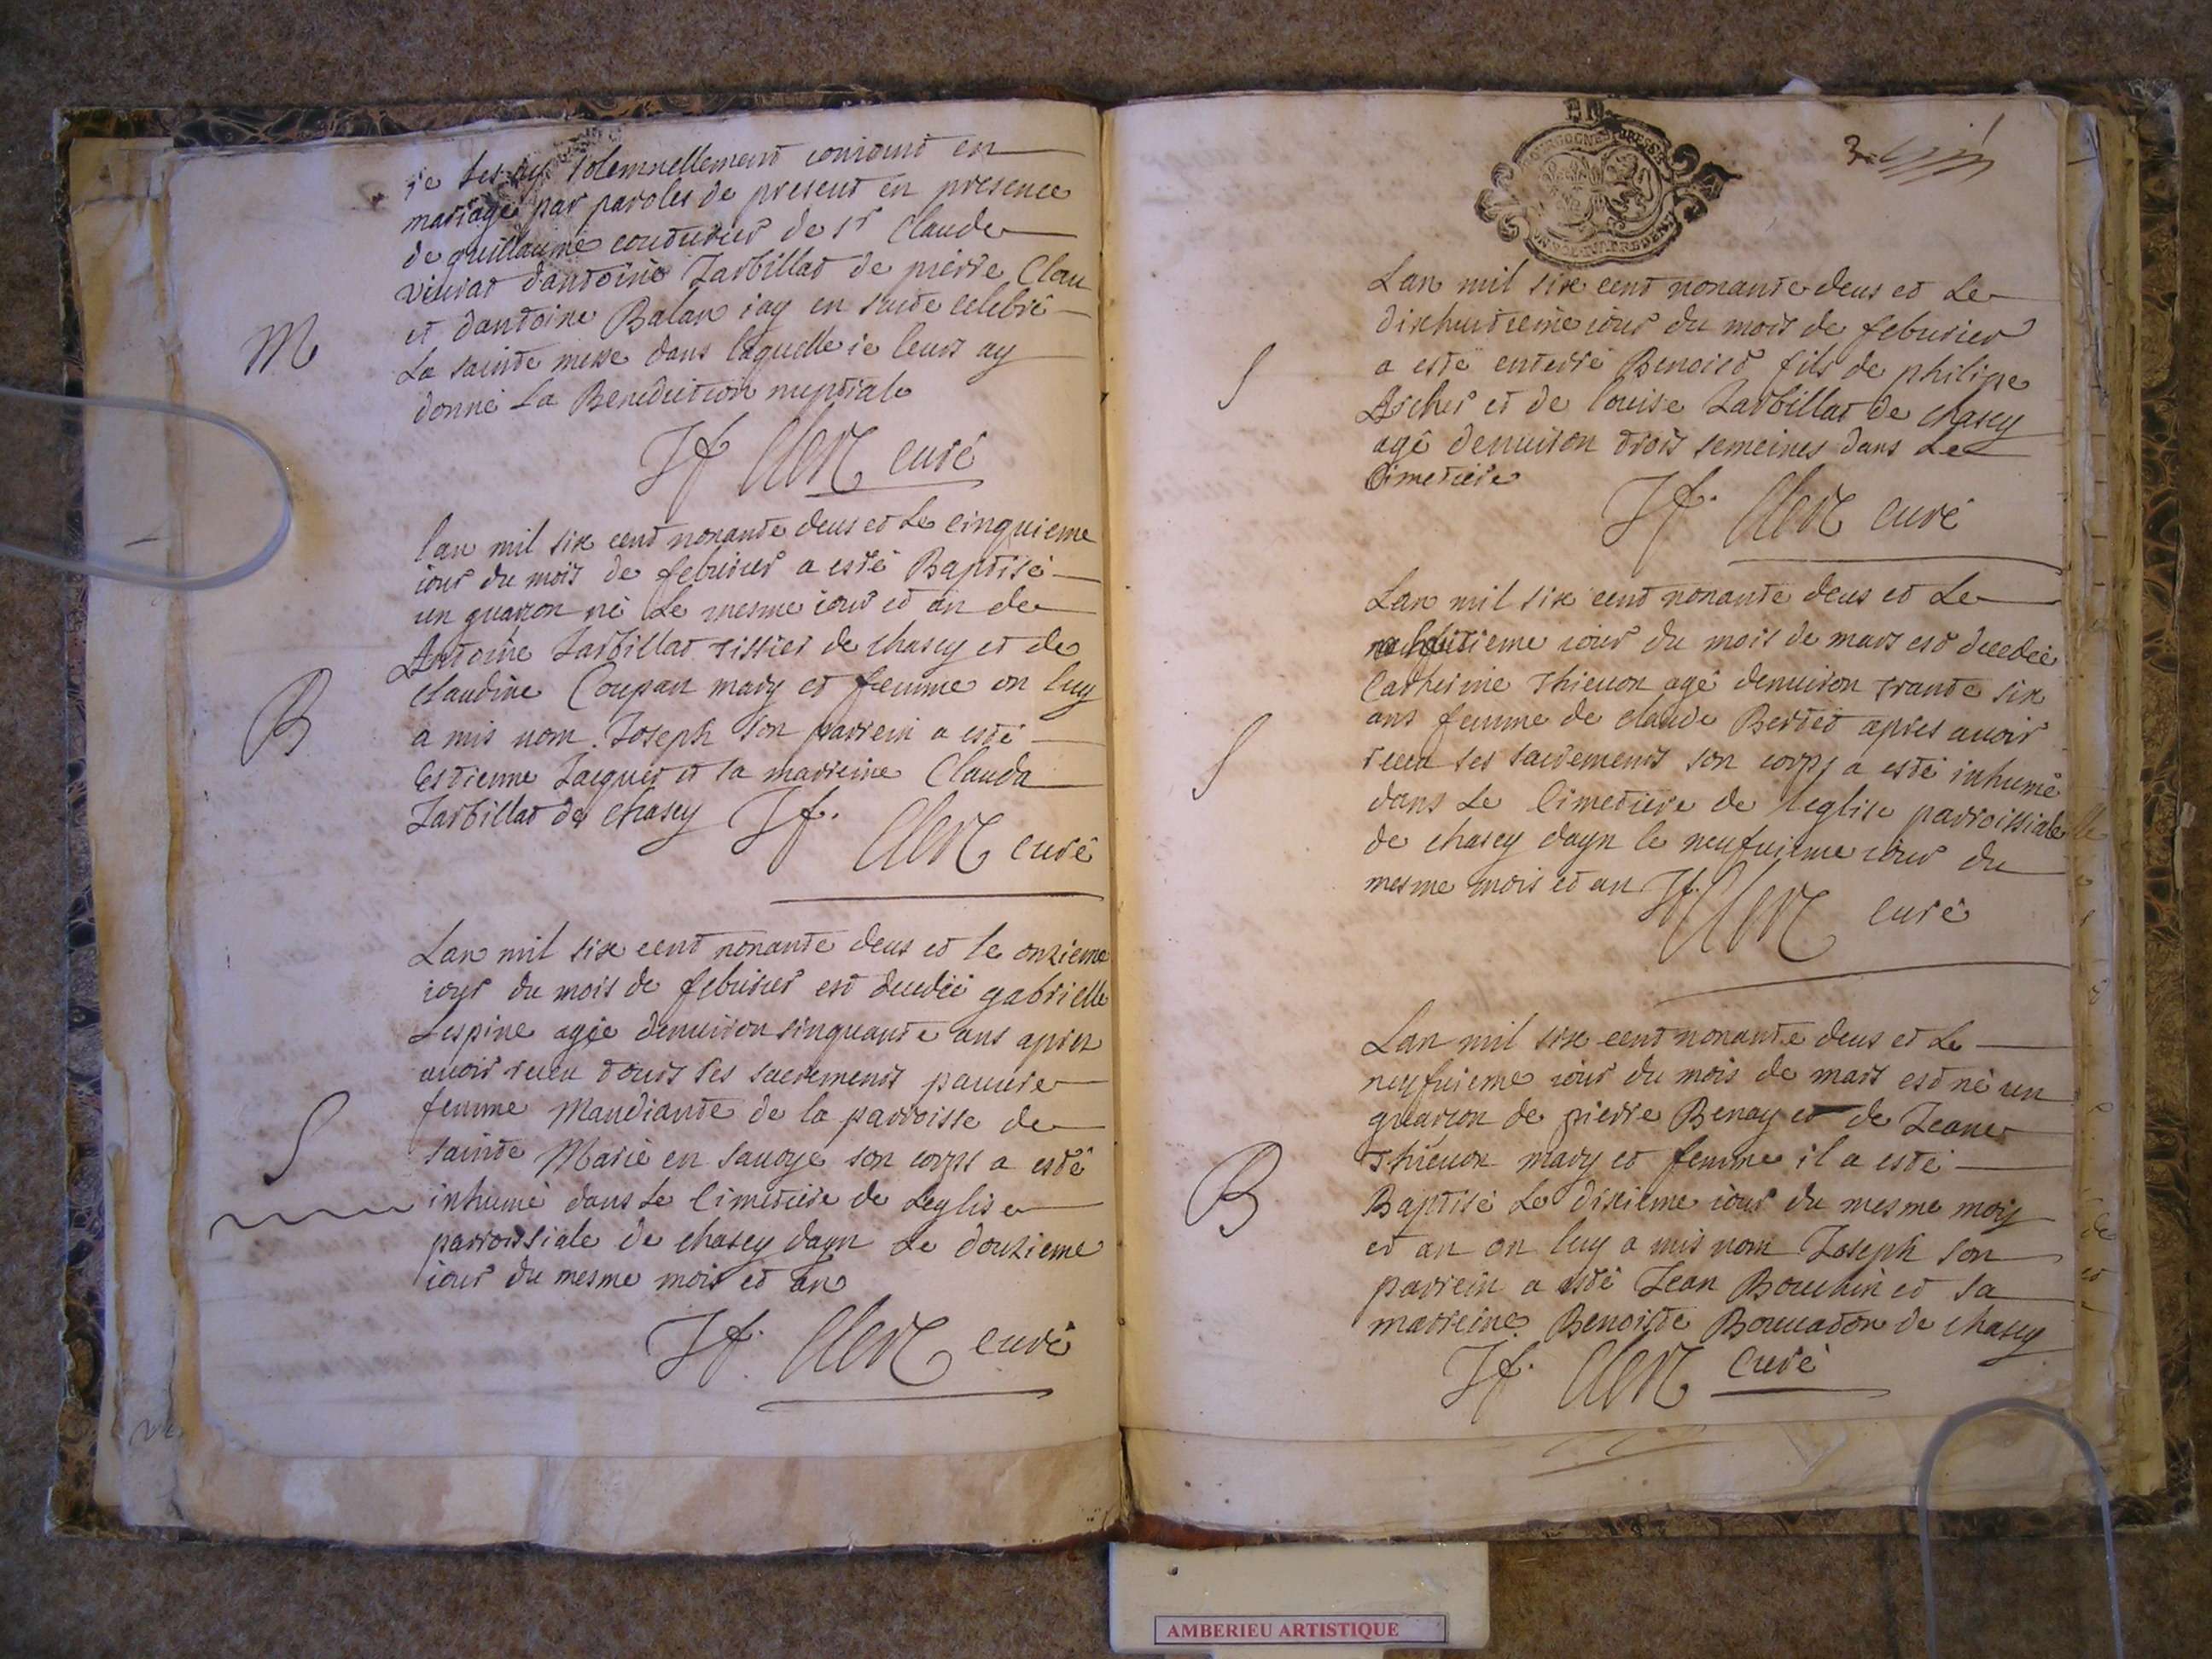 je les ay solemnellement conioint en
mariage par paroles de present en presence
de guillaume couturier de sr Claude
viurat dantoine Jarbillat de pierre Clau
et dantoine Balan iay en suite celebré
La sainte messe dans laquelle ie leurs ay
donné La Benediction nuptiale
M
Jf Clerc curé
lan mil six cent nonante deus et Le cinquieme
iour du mois de feburier a esté Baptisé
un guarzon né Le mesme iour et an de
Antoine Jarbillat tissier de chasey et de
claudine Coupan mary et femme on luy
a mis nom Joseph son parrein a esté
Estienne Jacquet et sa marreine Clauda
Jarbillat de chasey Jf.
B
Clerc curé
Lan mil six cent nonante deus et le onzieme
iour du mois de feburier est decedée gabrielle
Lespine agée denuiron sinquante ans aprez
auoir receu touts ses sacrements pauure
femme Mandiante de la parroisse de
sainte Marie en sauoye son corps a esté
inhumé dans Le Cimetiere de Leglise
parroissiale de chasey dayn Le douzieme
iour du mesme mois et an
S
Jf. Clerc curé
BOURGOGNE BRESSE
3
Lan mil six cent nonante deus et Le
dixhuictieme iour du mois de feburier
a esté enterré Benoist fils de philipe
Archer et de louise Jarbillat de chasey
agé denuiron trois semeines dans Le
Cimetiere
S
Jf. Clerc curé
Lan mil six cent nonante deus et Le
huitieme iour du mois de mars est decedée
Catherine Thieuon agé denuiron trante six
ans femme de claude Bertet apres auoir
receu ses sacrements son corps a esté inhumé
dans Le Cimetiere de leglise parroissiale
de chasey dayn le neufuieme iour du
mesme mois et an Jf. Clerc curé
S
Lan mil six cent nonante deus et Le
neufuieme iour du mois de mars est né un
guarzon de pierre Benay et de Jeane
Thieuon mary et femme il a esté
Baptisé Le dixieme iour du mesme mois
et an on luy a mis nom Joseph son
parrein a esté Jean Bouchin et sa
marreine Benoiste Bouuadon de chasey
B
Jf. Clerc Curé
AMBERIEU ARTISTIQUE